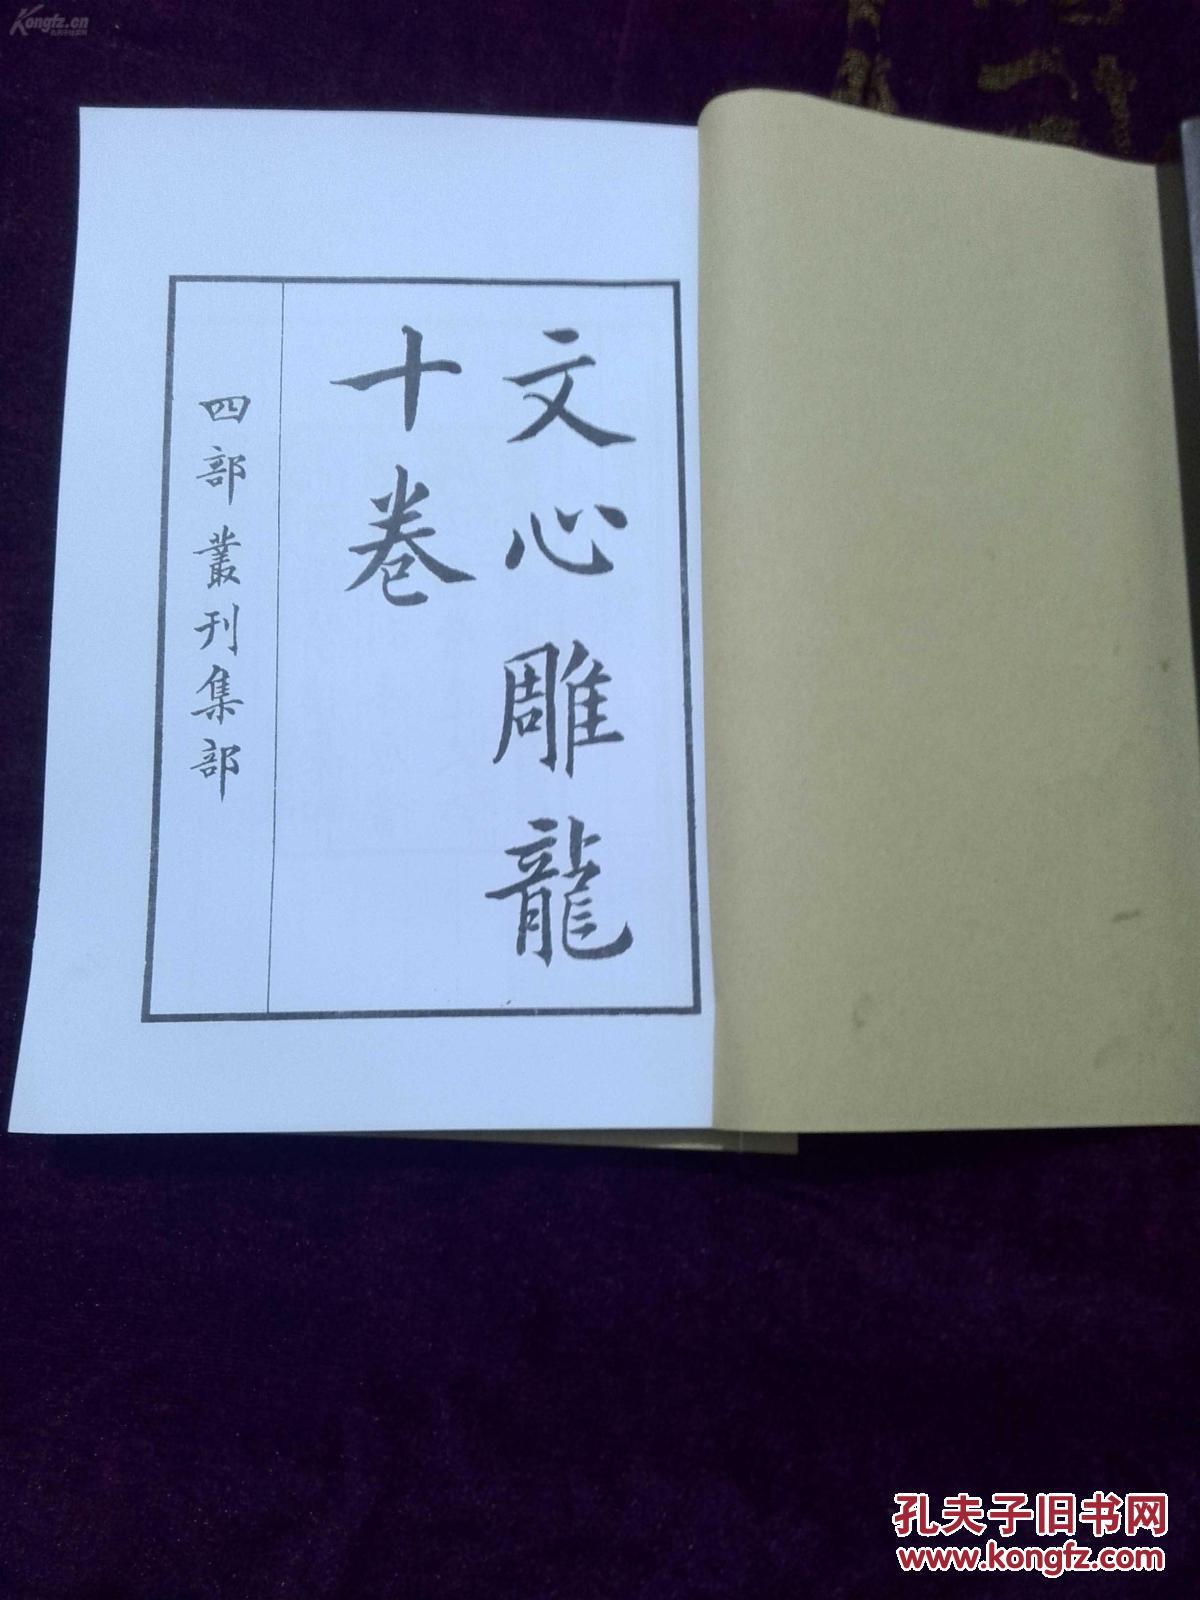 Kongfz.cn
孔夫子旧书网
文心雕龍
十卷
四部叢刊集部
孔夫子旧书网
www.kongfz.com